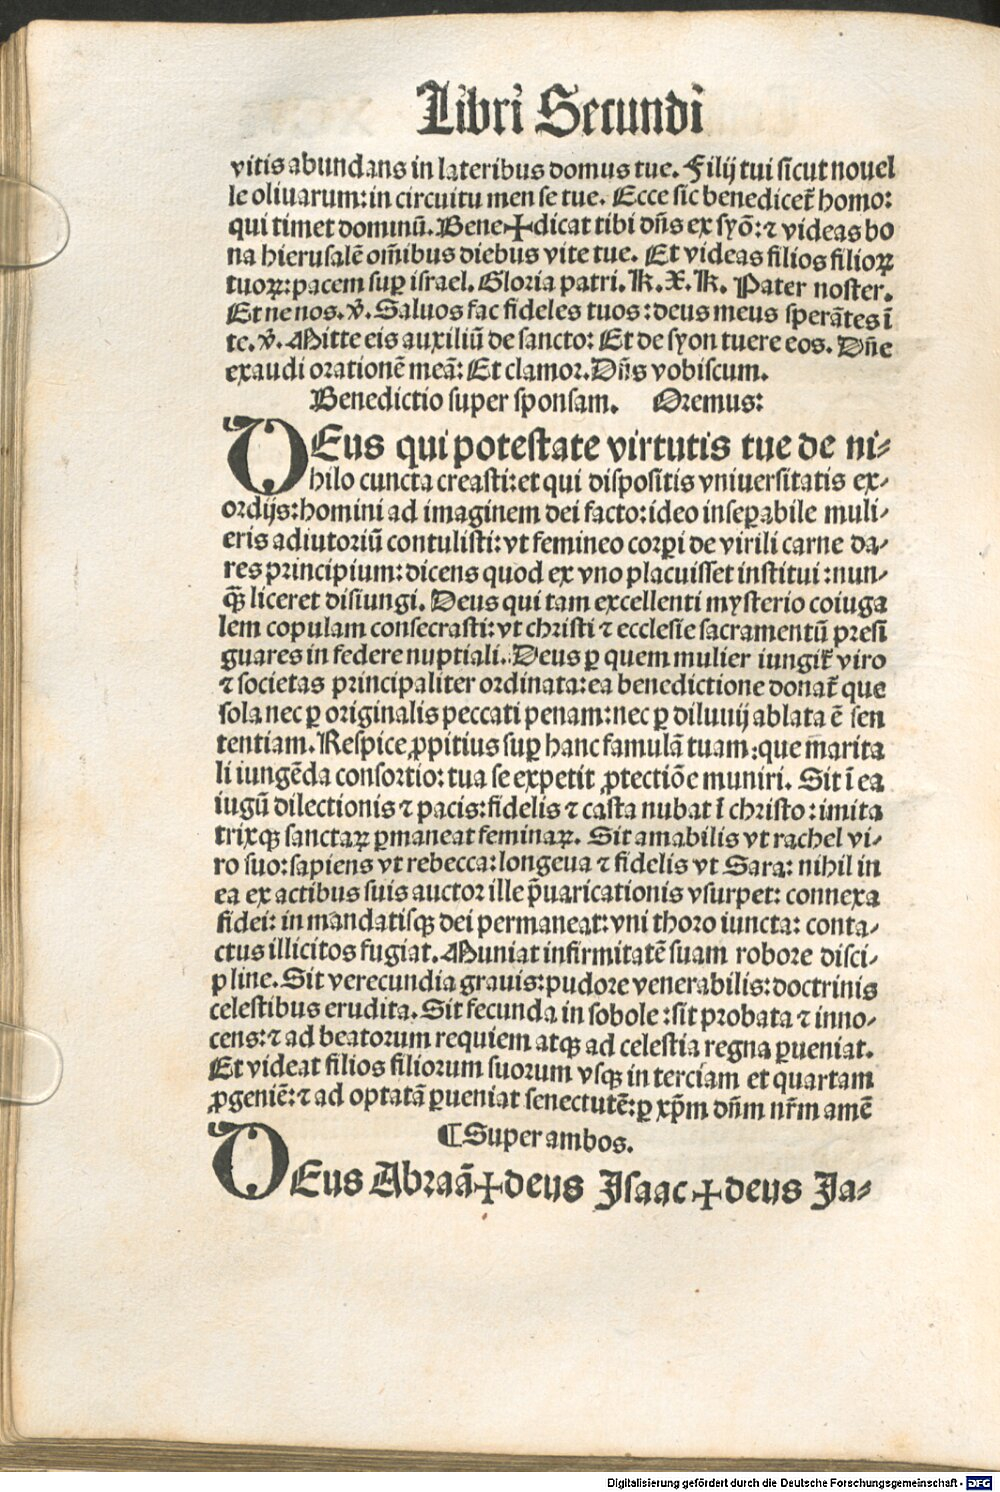 Libri Secundi
vitis abundans in lateribus domus tue. Filij tui sicut nouel
le oliuarum: in circuitu men se tue. Ecce sic benedicet̄ homo:
qui timet dominū. Bene✠dicat tibi dn̄s ex syō: ⁊ videas bo
na hierusalē om̄ibus diebus vite tue. Et videas filios filioꝝ
tuoꝝ: pacem suꝑ israel. Gloria patri. K. X. K. Pater noster.
Et ne nos. v̄. Saluos fac fideles tuos: deus meus sperātes ī
te. v̄. Mitte eis auxiliū de sancto: Et de syon tuere eos. Dn̄e
exaudi orationē meā: Et clamor. Dn̄s vobiscum.
Benedictio super sponsam. Oremus:
DEus qui potestate virtutis tue de ni⸗
hilo cuncta creasti: et qui dispositis vniuersitatis ex⸗
ordijs: homini ad imaginem dei facto: ideo inseꝑabile muli⸗
eris adiutoriū contulisti: vt femineo corꝑi de virili carne da⸗
res principium: dicens quod ex vno placuisset institui: nun⸗
qꝫ̄ liceret disiungi. Deus qui tam excellenti mysterio coiuga
lem copulam consecrasti: vt christi ⁊ ecclesie sacramentū presi
guares in federe nuptiali. Deus ꝑ quem mulier iungit̄ viro
⁊ societas principaliter ordinata: ea benedictione donat̄ que
sola nec ꝑ originalis peccati penam: nec ꝑ diluuij ablata ē sen
tentiam. Respice ꝓpitius suꝑ hanc famulā tuam: que marita
li iungēda consortio: tua se expetit ꝓtectiōe muniri. Sit ī ea
iugū dilectionis ⁊ pacis: fidelis ⁊ casta nubat ī christo: imita
trixqꝫ sanctaꝝ ꝑmaneat feminaꝝ. Sit amabilis vt rachel vi⸗
ro suo: sapiens vt rebecca: longeua ⁊ fidelis vt Sara: nihil in
ea ex actibus suis auctor ille p̄uaricationis vsurpet: connexa
fidei: in mandatisqꝫ dei permaneat: vni thoro iuncta: conta⸗
ctus illicitos fugiat. Muniat infirmitatē suam robore disci⸗
pline. Sit verecundia grauis: pudore venerabilis: doctrinis
celestibus erudita. Sit fecunda in sobole: sit probata ⁊ inno⸗
cens: ⁊ ad beatorum requiem atqꝫ ad celestia regna ꝑueniat.
Et videat filios filiorum suorum vsqꝫ in terciam et quartam
ꝓgeniē: ⁊ ad optatā ꝑueniat senectutē: ꝑ xp̄m dn̄m nr̄m amē
¶ Super ambos.
DEus Abraā✠deus Isaac✠deus Ja⸗
Digitalisierung gefördert durch die Deutsche Forschungsgemeinschaft - DFG